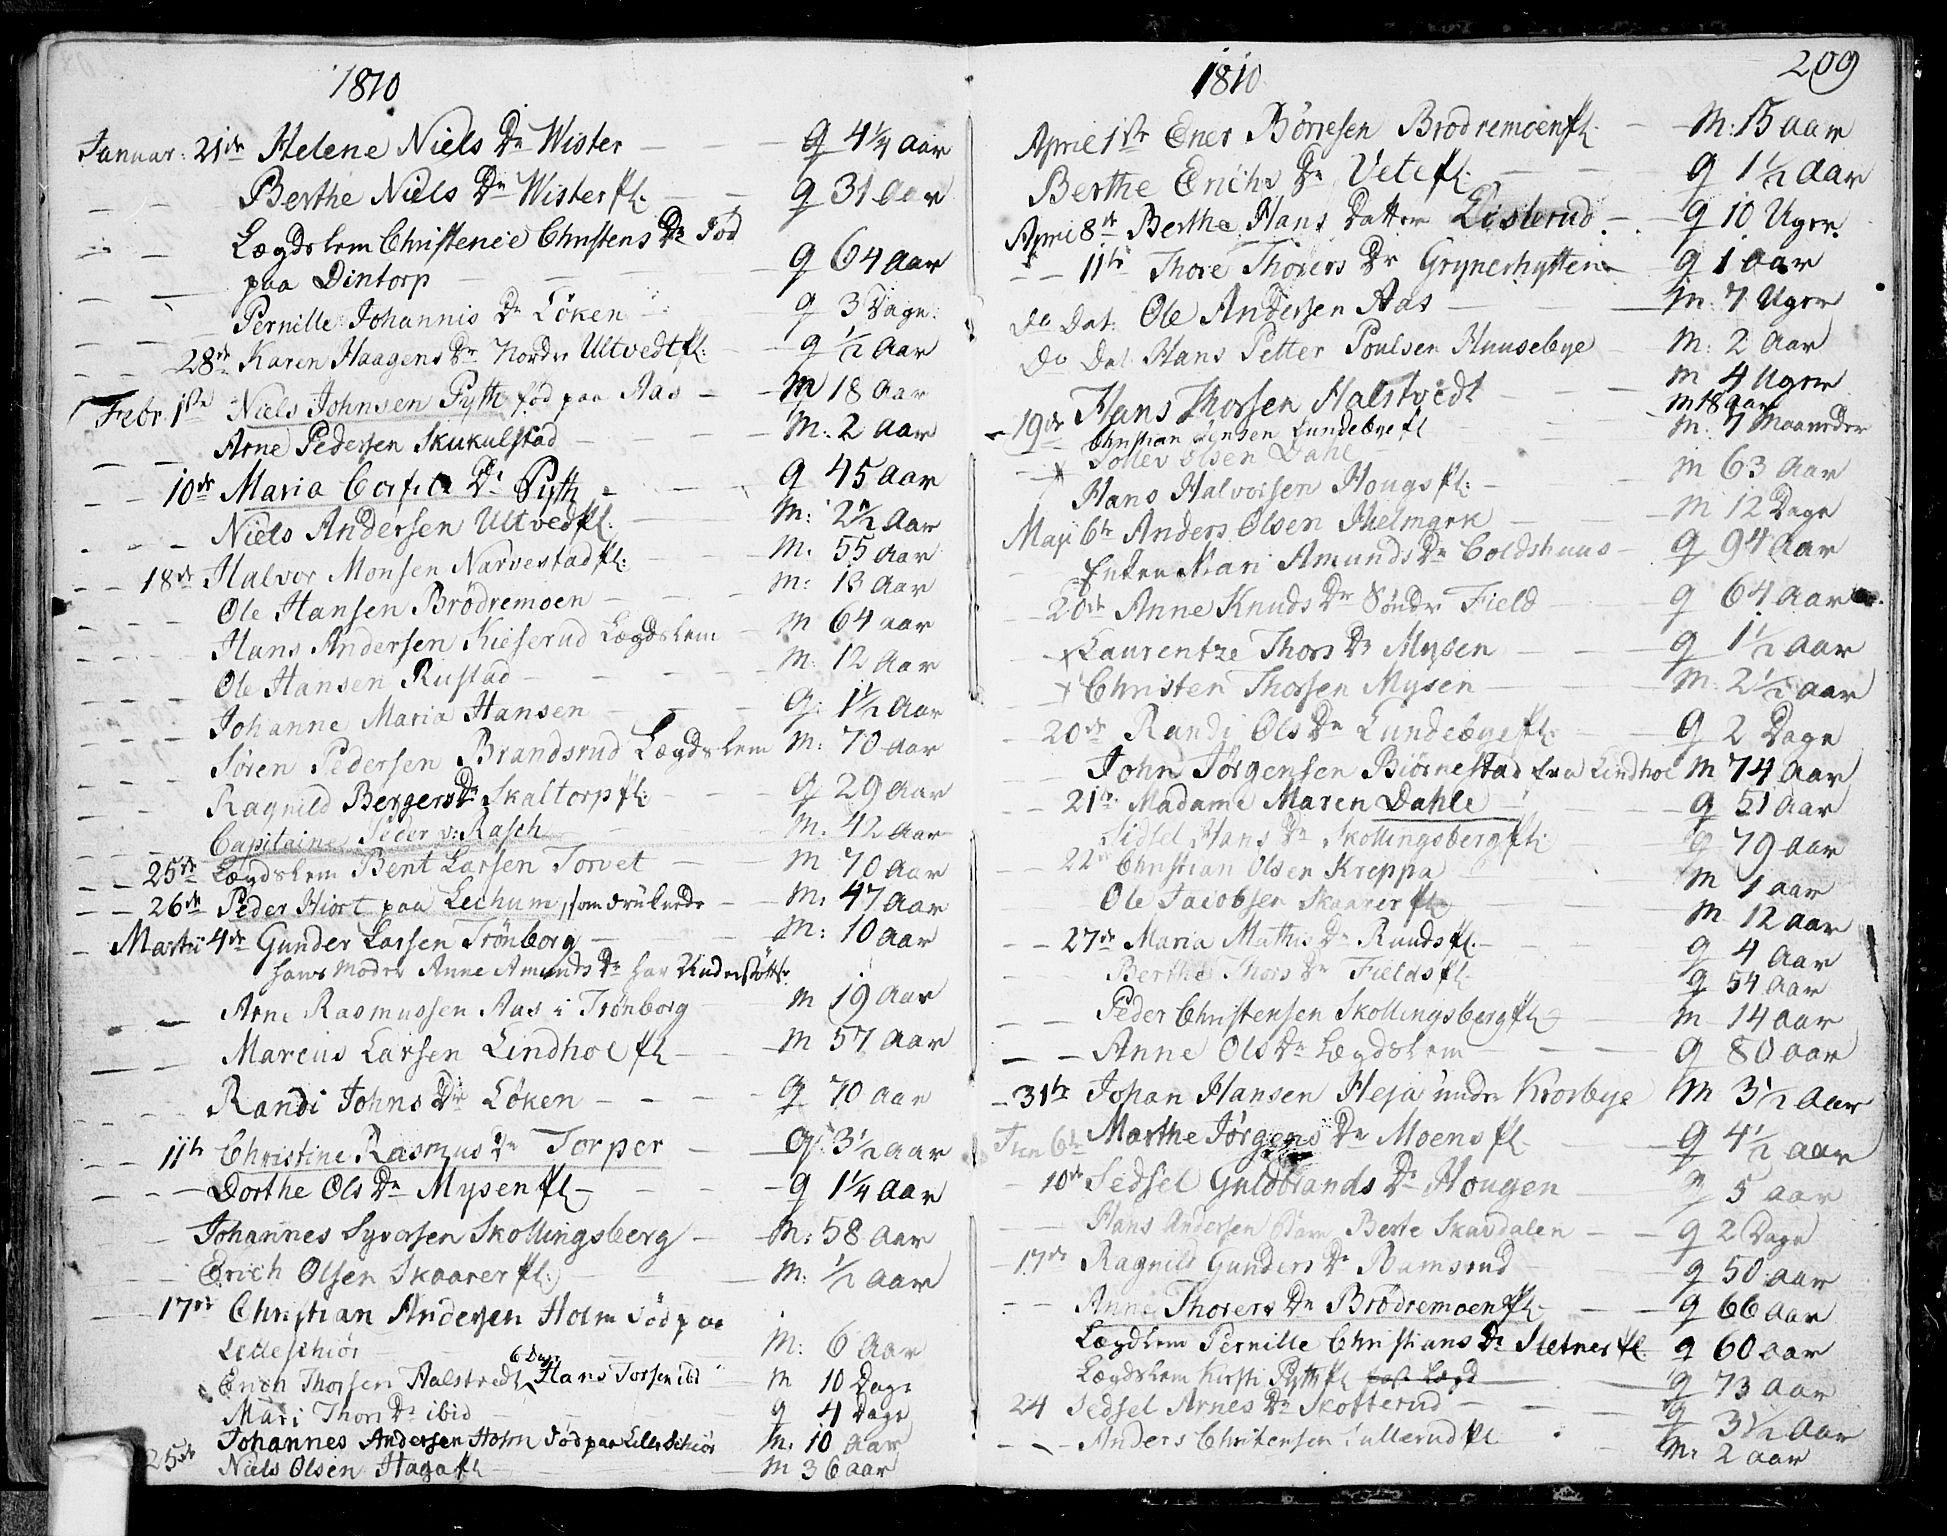 1810
Januar: 21de Helene Niels Dr Wister - - - q 4¼ Aar
- - Berthe Niels Dr Wister fl: - - q 31 Aar
- - Lægdslem Christence Christens Dr død
paa Dintorp - - - q 64 Aar
- - Pernille Johannis Dr Löken - q 3 Dage
- - 28de Karen Haagens Dr Nordre Ultvedt fl: - q ½ Aar
Febr: 1ste Niels Johnsen Pyth fød paa Aas - - M 18 Aar
- - Arne Pedersen Skukulstad - - M: 2 Aar
- - 10de Maria Dr Pyth - - - q 45 Aar
- - - Niels Andersen Ultved fl: - - M: 2½ Aar
- - 18de Halvor Monsen Narvestad fl: - - M: 55 Aar
- - - Ole Hansen Brödremoen - - - M: 13 Aar
- - - Hans Andersen Kieserud Lægdslem - M 64 aar
- - - Ole Hansen Rustad - - - - M: 12 Aar
- - - Johanne Maria Hansen - - - q: 1½ Aar
- - - Sören Pedersen Brandsrud Lægdslem M: 70 aar
- - - Ragnild Bergers Dr Skaltorp fl: - - q 29 aar
- - - Capitaine Peder v: Rasch - M: 42 Aar
- - 25de Lægdslem Bent Larsen Torvet - M 70 aar
- - 26de Peder Hiort paa Lechum, som druknede - M: 47 aar
- Martii 4de Gunder Larsen Trönborg - - M: 10 Aar
hans Moder Anne Amunds Dr har Understötte
- - Arne Rasmussen Aas i Trönborg - M 19 Aar
- - Marcus Larsen Lindhol fl - - M 57 Aar
- - Randi Johns Dr Löken - - - - q 70 aar
- - 11te Christine Rasmus Dr Torper - - q: 3½ aar
- - - Dorthe Ols Dr Mysen fl - - - q 1¼ aar
- Johannes Syversen Skollingsberg - - M: 58 Aar
- - Erich Olsen Skaarer fl: - - M: ½ aar
- - 17de Christian Andersen Holm död paa
Lilleschiör - - M: 6 Aar
6 Dage
Erich Thorsen Aalstvedt, Hans Torsen ibid M 10 Dage
Mari Thors Dr ibid - - - q 4 Dage
Johannes Andersen Holm Död paa Lilleschiör M: 10 Aar
25de Niels Olsen Haga fl - - - M 36 aar
1810
209
April 1ste Ener Börresen Brödremoen fl. - - M: 15 aar
Berthe Erichs Dr Vete fl: - - - q 1½ Aar
April 8de Berthe Hans Datter Eisterud. - - q 10 Uger.
- - 11te Thore Thorers Dr Grynerhytten - q 1 aar
do Dat: Ole Andersen Aas - - M: 7 Uger
do Dat Hans Petter Poulsen Huusebye M: 2 Aar
- 19de Hans Thorsen Halstvedt - - M 4 Uger
Christian Jensen Lundebye fl M 18 aar
- x Tollev Olsen Dahl - M: 7 Maaneder
Hans Halvorsen Hougs fl: - - M 63 Aar
Maji 6te Anders Olsen Hielmark - - M 12 Dage
- Enken Mari Amunds Dr Coldshuus - q 94 Aar
- 20de Anne Knuds Dr Söndr Field - q 64 aar
- x Laurentze Thors Dr Mysen - - q 1½ aar
- x Christen Thorsen Mysen - - M: 2½ aar
- 20de Randi Ols Dr Lundebye fl: - - q 2 Dage
- - John Jörgensen Biörnestad fra Lindhol M 74 Aar
- - 21de Madame Maren Dahle - - q 51 aar
- - Sidsel Hans Dr Skollingsberg fl: - q 79 aar
- - 22 Christian Olsen Kreppa - M 1 aar
Ole Jacobsen Skaarer fl - M 12 aar
- - 27de Maria Mathis Dr Ruuds fl. - - q 4 Aar
- Berthe Thors Dr Fields fl - - q 54 Aar
- - Peder Christensen Skollingsberg fl - M 14 aar
- - Anne Ols Dr Lægdslem - - q 80 aar
- 31te Johan Hansen Heja under Krosbye M 3½ Aar
Jun 6te Marthe Jörgens Dr Moens fl - - q 4½ aar
- 10de Sedsel Guldbrands Dr Hougen - q 5 aar
- - Hans Andersen Barn Berte Skardalen - - q 2 Dage
- 17de Ragnild Gunders Dr Ramsrud - - q 50 aar
- - Anne Thorers Dr Brödremoen fl - - q 66 aar
Lægdslem Pernille Christians Dr Sletner fl. q 60 aar
Lægdslem Kirsti Pyths fl - q 73 Aar
24 Sedsel Arnes Dr Skofterud - - - q 3½ Aar
- - - Anders Christensen Tullerud fl - M: 2 aar